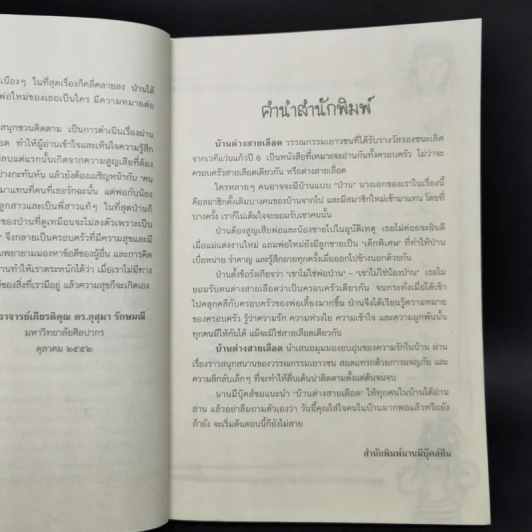 เนืองๆ ในที่สุดเรื่องก็คลี่คลายลง ป่านได้
พ่อใหม่ของเธอเป็นใคร มีความหมายต่อ
สนุกชวนติดตาม เป็นการดำเนินเรื่องผ่าน
อด ทำให้ผู้อ่านเข้าใจและเห็นความรู้สึก
รสบแต่แรกนั้นเกิดจากความสูญเสียที่ต้อง
ย่างกะทันหัน แล้วยังต้องเผชิญหน้ากับ "คน
มาแทนที่คนที่เธอรักฉะนั้น แต่พอกับน้อง
ลูกสาวและเป็นพี่สาวแท้ๆ ในที่สุดป่านก็
ของป่านที่ดูเหมือนจะไม่ลงตัวเพราะเป็น
จึงกลายเป็นครอบครัวที่มีความสุขและมี
นพยายามมองหาข้อดีของผู้อื่น และการคิด
านทำให้เราตระหนักได้ว่า เมื่อเราไม่มีทาง
ของสิ่งที่เรามีอยู่ แล้วความสุขก็จะเกิดเอง
ราจารย์เกียรติคุณ ดร.กุสุมา รักษมณี
มหาวิทยาลัยศิลปากร
ตุลาคม ๒๕๕๒
คำนำสำนักพิมพ์
บ้านต่างสายเลือด วรรณกรรมเยาวชนที่ได้รับรางวัลรองชนะเลิศ
จากเวทีแว่นแก้วปี 6 เป็นหนังสือที่เหมาะจะอ่านกันทั้งครอบครัว ไม่ว่าจะ
ครอบครัวสายเลือดเดียวกัน หรือต่างสายเลือด
ใครหลายๆ คนอาจจะมีบ้านแบบ "ป่าน" นางเอกของเราในเรื่องนี้
คือสมาชิกดั้งเดิมบางคนของบ้านจากไป และมีสมาชิกใหม่เข้ามาแทน โดยที่
บางครั้ง เราก็ไม่เต็มใจจะยอมรับเขาคนนั้น
ป่านต้องสูญเสียพ่อและน้องชายไปในอุบัติเหตุ เธอไม่ค่อยจะยินดี
เมื่อแม่แต่งงานใหม่ แถมพ่อใหม่ยังมีลูกชายเป็น "เด็กพิเศษ" ที่ทำให้ป่าน
เบื่อหน่าย รำคาญ และรู้สึกอายทุกครั้งเมื่อออกไปข้างนอกด้วยกัน
ป่านตั้งข้อรังเกียจว่า "เขาไม่ใช่พ่อป่าน" – "เขาไม่ใช่น้องป่าน" เธอไม่
ยอมรับคนต่างสายเลือดว่าเป็นครอบครัวเดียวกัน จนกระทั่งเมื่อได้เข้า
ไปคลุกคลีกับครอบครัวของพ่อเลี้ยงมากขึ้น ป่านจึงได้เรียนรู้ความหมาย
ของครอบครัว รู้ว่าความรัก ความห่วงใย ความเข้าใจ และความผูกพันนั้น
ทุกคนมีให้กันได้ แม้จะมิใช่สายเลือดเดียวกัน
บ้านต่างสายเลือด นำเสนอมุมมองอบอุ่นของความรักในบ้าน ผ่าน
เรื่องราวสนุกสนานของวรรณกรรมเยาวชน สอดแทรกด้วยการผจญภัย และ
ความลึกลับเล็กๆ ที่จะทำให้ตื่นเต้นน่าติดตามตั้งแต่ต้นจนจบ
นานมีบุ๊คส์ขอแนะนำ "บ้านต่างสายเลือด" ให้ทุกคนในบ้านได้อ่าน
อ่าน แล้วอย่าลืมถามตัวเองว่า วันนี้คุณใส่ใจคนในบ้านมากพอแล้วหรือยัง
ถ้ายัง จะเริ่มต้นตอนนี้ก็ยังไม่สาย
สำนักพิมพ์นานมีบุ๊คส์ทีน